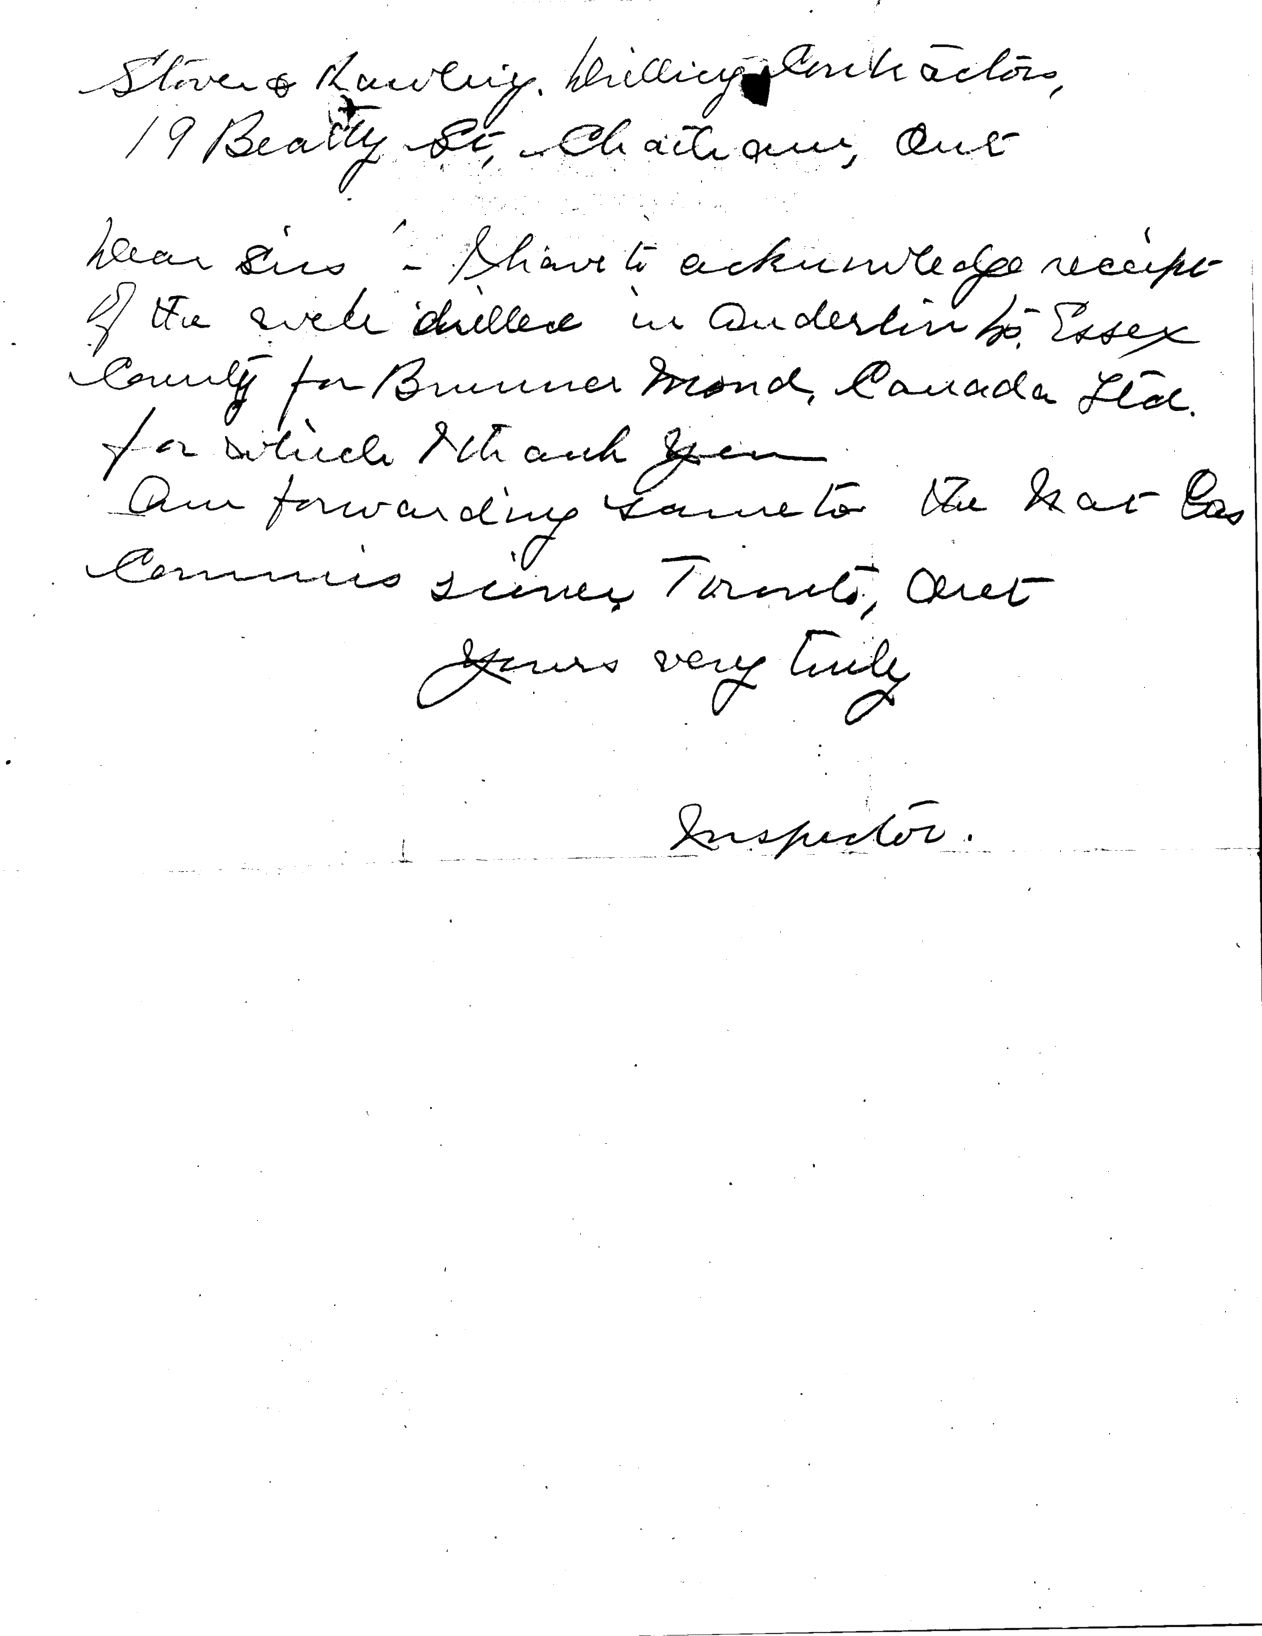 Stover & Rawling. Drilling Contractors,
19 Beatty St, Chatham, Ont
Dear Sirs - I have to acknowledge receipt
of the well drilled in Anderdon Essex
County for Brunner Mond, Canada Ltd.
for which I thank you
Am forwarding same to the Nat Gas
Commissioner, Toronto, Ont
Yours very truly
Inspector.